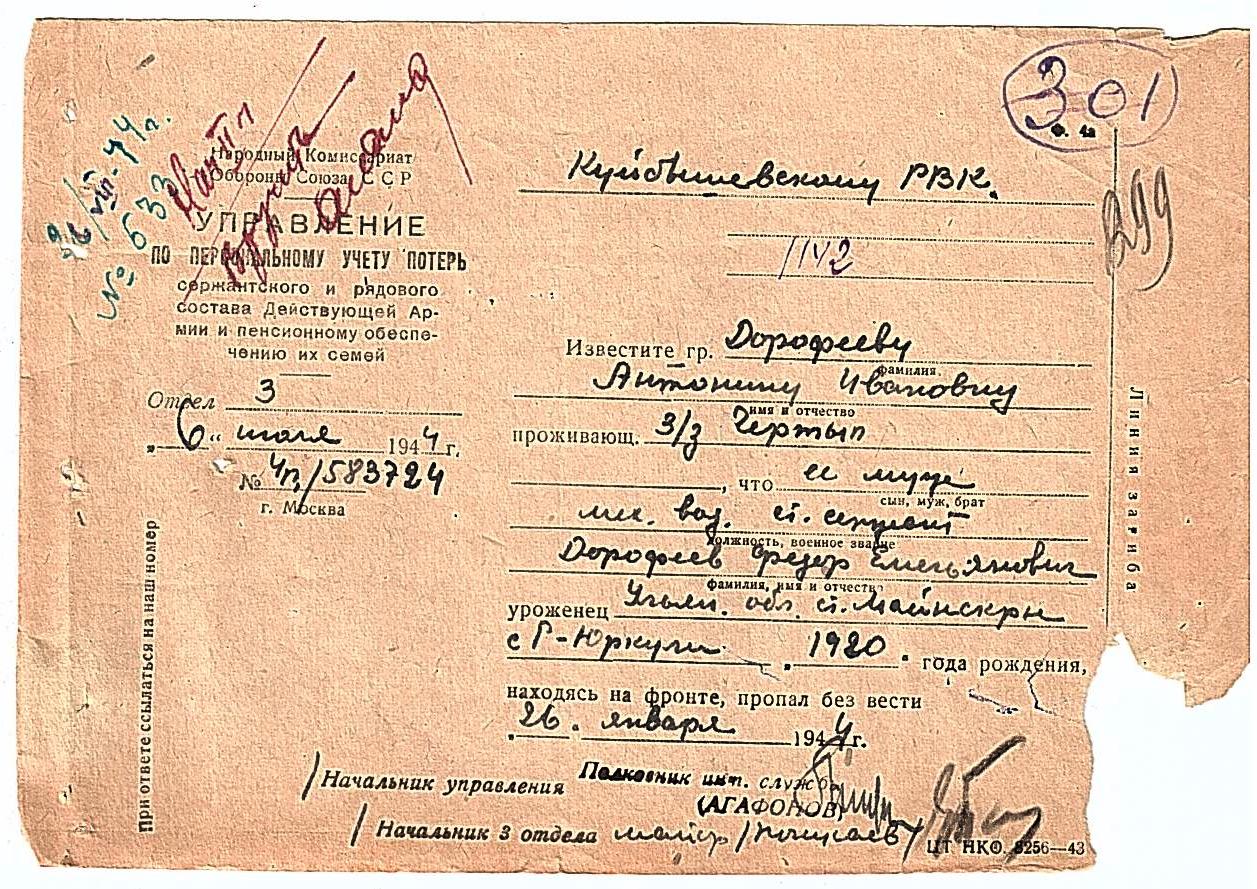 301
Ф. 4а
299
26/VIII-44г.
№ 633
Народный Комиссариат
Обороны Союза ССР
УПРАВЛЕНИЕ
ПО ПЕРСОНАЛЬНОМУ УЧЕТУ ПОТЕРЬ
сержантского и рядового
состава Действующей Ар-
мии и пенсионному обеспе-
чению их семей
Отдел 3
„6" июля 1944 г.
№ 4п/583724
г. Москва
При ответе ссылаться на наш номер
Куйбышевскому РВК.
Известите гр. Дорофееву
фамилия
Антонину Ивановну
имя и отчество
проживающ. з/д
, что ее муж
сын, муж, брат
мех. вод. ст. сержант
должность, военное звание
Дорофеев Федор Емельянович
фамилия, имя и отчество
уроженец обл. ст. Майнский рн
с Г-Юркули 1920 года рождения,
находясь на фронте, пропал без вести
26 января 1944 г.
Начальник управления Полковник инт. службы
(АГАФОНОВ)
Начальник 3 отдела майор
ЦТ НКО. 8256—43
Линия загиба